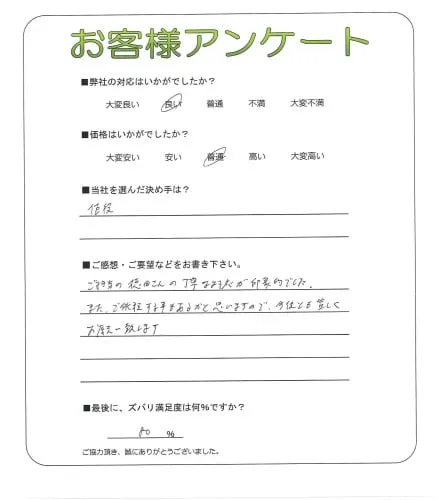 お客様アンケート
■弊社の対応はいかがでしたか？
大変良い 良い 普通 不満 大変不満
■価格はいかがでしたか？
大変安い 安い 普通 高い 大変高い
■当社を選んだ決め手は？
値段
■ご感想・ご要望などをお書き下さい。
ご担当の徳田さんの丁寧な対応が印象的でした。
また、ご依頼する事もあるかと思いますので、今後とも宜しく
お願い致します
■最後に、ズバリ満足度は何％ですか？
80 ％
ご協力頂き、誠にありがとうございました。